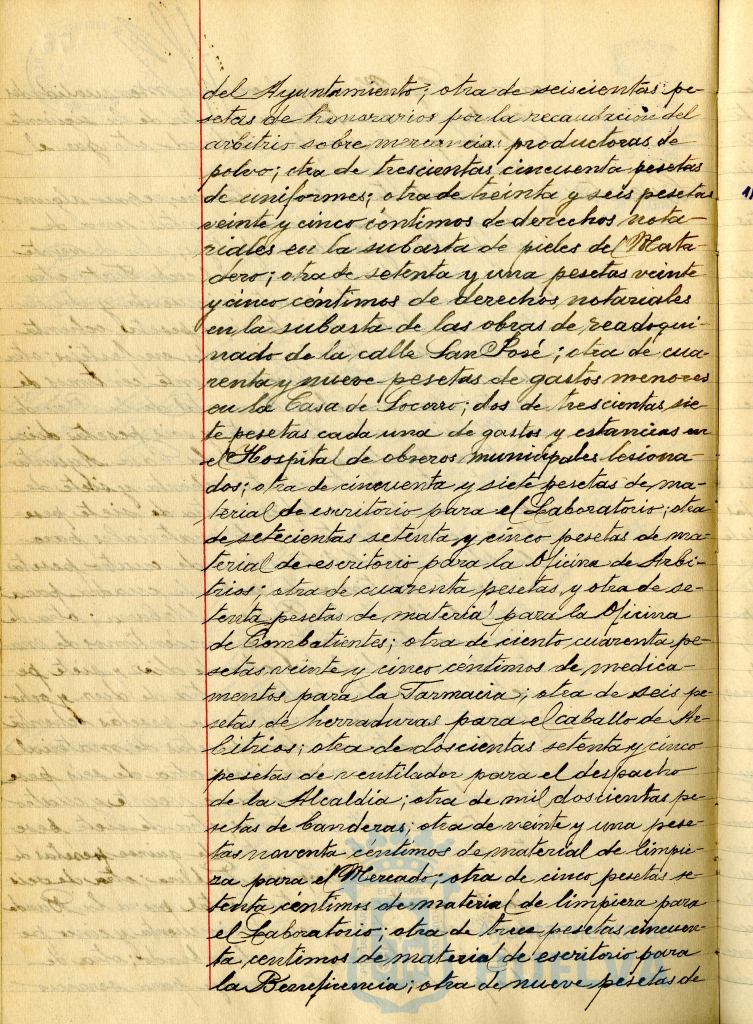 del Ayuntamiento; otra de seiscientas pe-
setas de honorarios por la recaudación del
arbitrio sobre mercancias productoras de
polvo; otra de trescientas cincuenta pesetas
de uniformes; otra de treinta y seis pesetas
veinte y cinco céntimos de derechos nota-
riales en la subasta de pieles del Mata-
dero; otra de setenta y una pesetas veinte
y cinco céntimos de derechos notariales
en la subasta de las obras de readoqui-
nado de la calle San José; otra de cua-
renta y nueve pesetas de gastos menores
en la Casa de Socorro; dos de trescientas sie-
te pesetas cada una de gastos y estancias en
el Hospital de obreros municipales lesiona-
dos; otra de cincuenta y siete pesetas de ma-
terial de escritorio para el Laboratorio; otra
de setecientas setenta y cinco pesetas de ma-
terial de escritorio para la Oficina de Arbi-
trios; otra de cuarenta pesetas y otra de se-
tenta pesetas de material para la Oficina
de Combatientes; otra de ciento cuarenta pe-
setas veinte y cinco céntimos de medica-
mentos para la Farmacia; otra de seis pe-
setas de herraduras para el caballo de Ar-
bitrios; otra de doscientas setenta y cinco
pesetas de ventilador para el despacho
de la Alcaldía; otra de mil doscientas pe-
setas de banderas; otra de veinte y una pese-
tas noventa céntimos de material de limpie-
za para el Mercado; otra de cinco pesetas se-
tenta céntimos de material de limpieza para
el Laboratorio; otra de trece pesetas cincuen-
ta céntimos de material de escritorio para
la Beneficencia; otra de nueve pesetas de